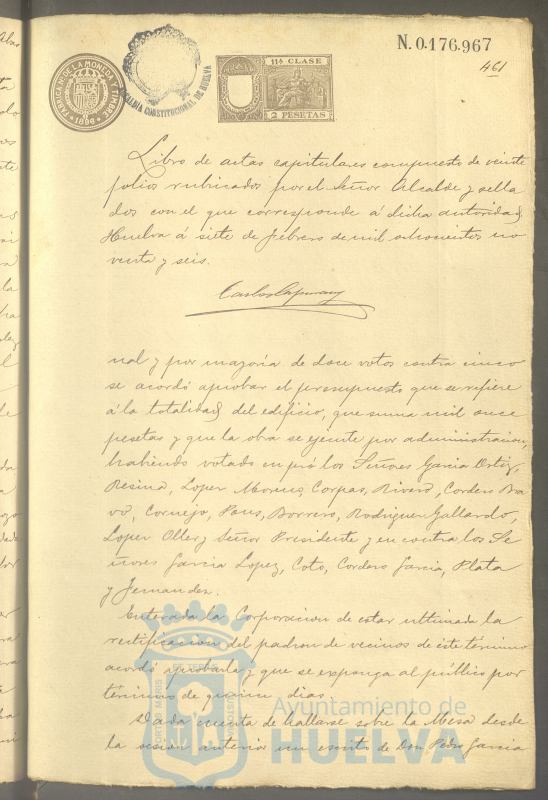 N. 0.176.967
461
FABRICA N. DE LA MONEDA Y TIMBRE
1896
ALCALDIA CONSTITUCIONAL DE HUELVA
11ª CLASE
2 PESETAS
Libro de actas capitulares compuesto de veinte
folios rubricados por el Señor Alcalde y sella
dos con el que corresponde á dicha autoridad
Huelva á siete de Febrero de mil ochocientos no
venta y seis.
Carlos
nal y por mayoria de doce votos contra cinco
se acordó aprobar el presupuesto que se refiere
á la totalidad del edificio, que suma mil once
pesetas y que la obra se ejecute por administracion,
habiendo votado en pró los Señores Garcia Ortiz,
Resina, Lopez Moreno, Corpas, Rivero, Cordero Bra
vo, Cornejo, Pons, Borrero, Rodriguez Gallardo,
Lopez Oller y Señor Presidente y en contra los Se
ñores Garcia Lopez, Coto, Cordero Garcia, Plata
y Fernandez.
Enterada la Corporacion de estar ultimada la
rectificacion del padron de vecinos de este término
acordó aprobarla y que se exponga al público por
término de quince dias.
Dada cuenta de hallarse sobre la Mesa desde
la sesion anterior un escrito de Don Pedro Garcia
Ayuntamiento de
HUELVA